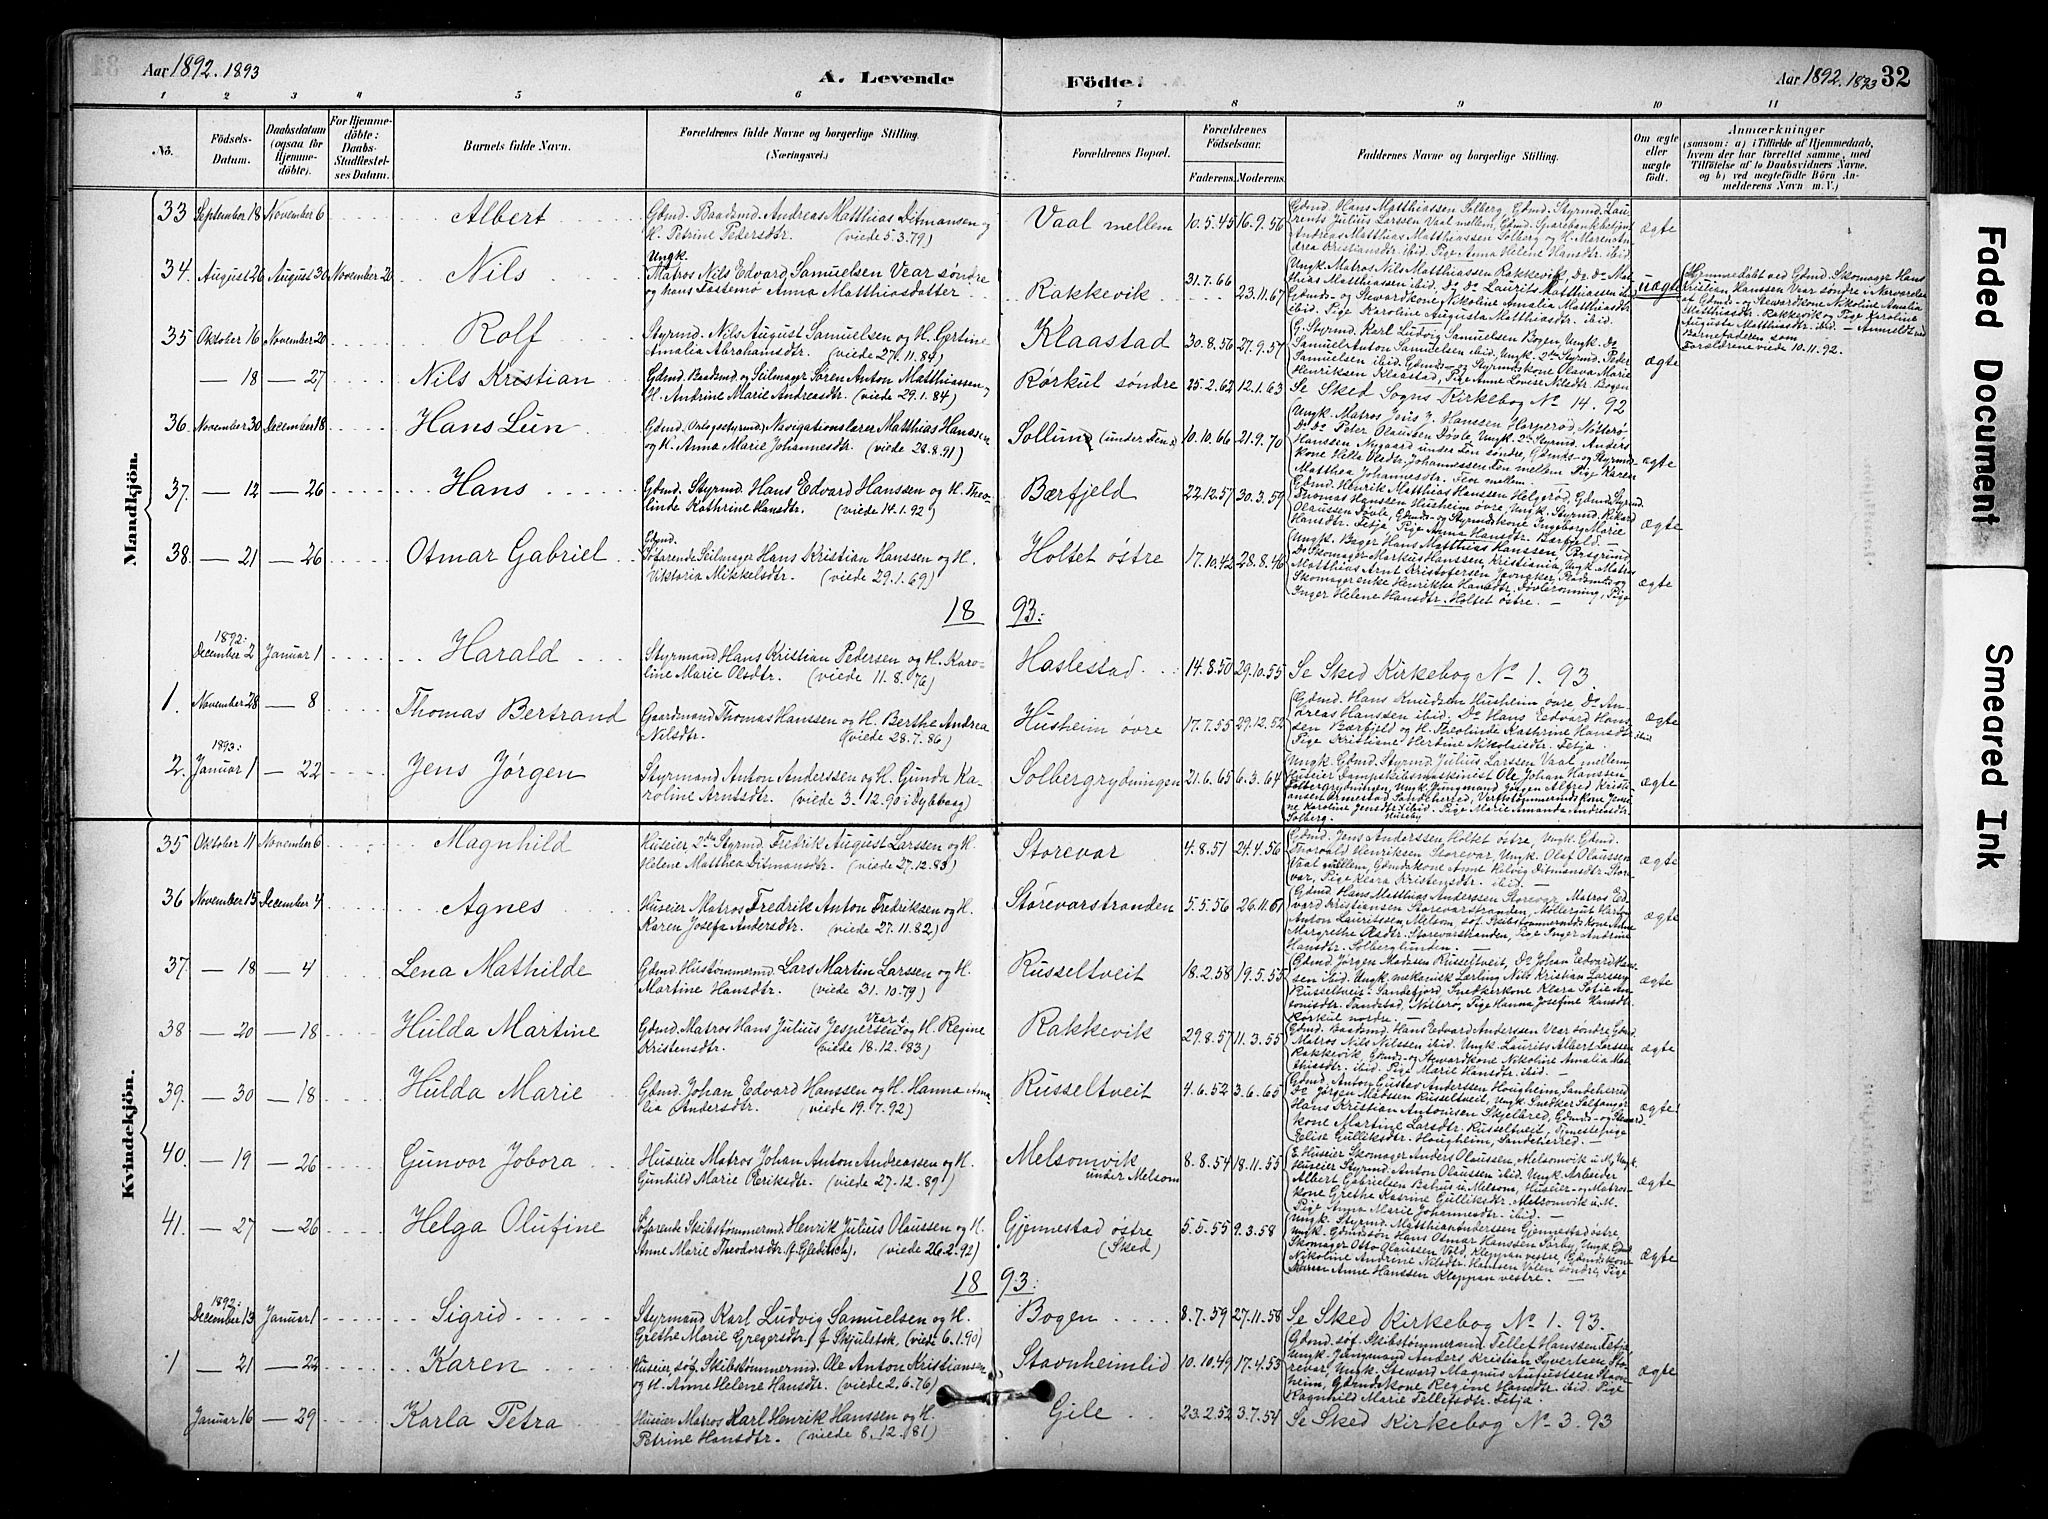 Aar 1892. 1893
A. Levende
Födte.
Aar 1892. 1893
32
1 2 3 4 5 6 7 8 9 10 11
Nö.
Födsels-Datum.
Daabsdatum (ogsaa for Hjemme-döbte).
For Hjemme-döbte: Daabs-Stadfæstel-ses Datum.
Barnets fulde Navn.
Forældrenes fulde Navne og borgerlige Stilling.
(Næringsvei.)
Forældrenes Bopæl.
Forældrenes Födselsaar.
Faderens. Moderens.
Faddernes Navne og borgerlige Stilling.
Om ægte eller uægte födt.
Anmærkninger
(saasom: a) i Tilfælde af Hjemmedaab, hvem der har forrettet samme, med Tilföielse af to Daabsvidners Navne, og b) ved uægtefödte Börn An-melderens Navn m. V.)
Mandkjön.
33 September 18 November 6 Albert
Gdmd. Baadsmd. Andreas Matthias Ditmansen og
H. Petrine Pedersdtr. (viede 5.3.79)
Vaal mellem 10.5.45 16.9.56
Gdmd. Hans Matthiassen Solberg, Gdmd. Styrmd. Lau-
rents Julius Larssen Vaal mellem, Gdmd. Sparebankbestyr
Andreas Matthias Matthiassen Solberg og H. Maren An-
drea Kristiansdtr. ibid. Pige Anna Helene Hansdtr. ibid.
ægte
34 August 26 August 30 November 20 Nils
Ungk.
Matros Nils Edvard Samuelsen Vear søndre
og hans Fæstemø Anna Matthiasdatter
Rakkevik 31.7.66 23.11.67
Ungk. Matros Nils Matthiassen Rakkevik, Do. Do. Mat-
thias Matthiassen ibid. Do. Do. Laurits Matthiassen ibid.
Gdmds- og Stewardkone Nikoline Amalia Matthiasdtr
ibid. Pige Karoline Augusta Matthiasdtr. ibid.
uægte
Hjemmedøbt ved Gdmd. Skomager Hans
Kristian Hanssen Vear søndre i Nærværelse
af Gdmds- og Stewardkone Nikoline Amalia
Matthiasdtr. Rakkevik og Pige Karoline
Augusta Matthiasdtr. ibid. — Anmeldt ved
Barnefaderen som
Forældrene viede 10.11.92.
35 Oktober 16 November 20 Rolf
Styrmd. Nils August Samuelsen og H. Gertine
Amalia Abrahamsdtr. (viede 27.11.84)
Klaastad 30.8.56 27.9.57
G. Styrmd. Karl Ludvig Samuelsen Bogen, Ungk. Do.
Samuel Anton Samuelsen ibid, Ungk. 2den Styrmd. Peder
Samuelsen ibid. Gdmds- og Styrmdskone Olava Marie
Henriksen Klaastad, Pige Anne Lovise Nilsdtr. Bogen
ægte
— 18 — 27 Nils Kristian
Gdmd. Baadsmd. og Seilmagr Søren Anton Matthiassen og
H. Andrine Marie Andreasdtr. (viede 29.1.84)
Rørkul søndre 25.2.62 12.1.63
Se Sked Sogns Kirkebog No 14. 92
36 November 30 December 18 Hans Lun
Gdmd. (Orlogsstyrmd.) Navigationslærer Matthias Hanssen
og H. Anna Marie Johannesdtr. (viede 28.8.91)
Sollund (under Fen) 10.10.66 21.9.70
Ungk. Matros Jens J. Hanssen Harperød Nøtterø
Do. Do. Peter Olaussen Døvle, Ungk. 2den Styrmd. Anders
Hanssen Nygaard under Fen søndre, Gdmds- og Styrmds-
kone Hella Olsdtr. Johannessen Fen mellem, Pige Karen
Matthea Johannesdtr. Fen mellem.
ægte
37. — 12 — 26 Hans
Gdmd. Styrmd. Hans Edvard Hanssen og H. Theo-
linde Kathrine Hansdtr. (viede 14.1.92)
Bærfjeld 22.12.57 30.3.59
Gdmd. Henrik Matthias Hanssen Helgerød, Gdmd. Styrmd.
Thomas Hanssen Husheim øvre, Ungk. Styrmd. Rikard
Olaussen Døvle, Gdmds- og Styrmdskone Ingeborg Marie
Hansdtr. Fetja, Pige Anna Hansdtr. Bærfjeld. —
ægte
38. — 21 — 26 Otmar Gabriel
Gdmd.
Søfarende Seilmager Hans Kristian Hanssen og H.
Viktoria Mikkelsdtr. (viede 29.1.69)
Holtet østre 17.10.42 28.8.46
Ungk. Bager Hans Matthias Hanssen, Porsgrund,
Do. Skomager Markus Hanssen Kristiania, Ungk. Matros
Matthias Arnt Kristofersen
Skomagerenke Henrikke Hansdtr. Døvlerønning, Pige
Inger Helene Hansdtr. Holtet østre. —
ægte
18 93:
1892:
December 2 Januar 1 Harald
Styrmand Hans Kristian Pedersen og H. Karo-
line Marie Olsdtr. (viede 11.8.76)
Haslestad 14.8.50 29.10.55
Se Sked Kirkebog No 1. 93
1. November 28 — 8 Thomas Bertrand
Gaardmand Thomas Hanssen og H. Berthe Andrea
Nilsdtr. (viede 28.7.86)
Husheim øvre 17.7.55 29.12.52
Gdmd. Hans Knudsen Husheim øvre, Do. An-
dreas Hanssen ibid. Do. Hans Edvard Hans-
sen Bærfjeld og H. Theolinde Kathrine Hansdtr. ibid
Pige Kristiane Hertine Nikolaisdtr. Fetja.
ægte
1893:
2. Januar 1 — 22 Jens Jørgen
Styrmand Anton Anderssen og H. Gunda Ka-
roline Arntsdtr. (viede 3.12.90 i Dybvaag)
Solbergrydningen 21.6.65 6.3.64
Ungk. Gdmd. Styrmd. Julius Larssen Vaal mellem,
Huseier Dampskibsmaskinist Ole Johan Hanssen
Solbergrydningen, Ungk. Jungmand Jørgen Alfred Kristi-
ansen Sandeherred, Verftstømmermdskone Jens-
ine Karoline Jensdtr. ibid. Pige Marie Amanda Andersdtr.
Solberg.
ægte
Kvindekjön.
35 Oktober 11 November 6 Magnhild
Huseier 2den Styrmd. Fredrik August Larssen og H.
Helene Matthea Ditmansdtr. (viede 27.12.83)
Storevar 4.8.51 24.4.56
Gdmd. Jens Anderssen Holtet østre, Ungk. Gdmd.
Thorvald Henriksen Storevar, Ungk. Olaf Olaussen
Vaal mellem, Gdmdskone Anne Helvig Ditmansdtr. Store-
var, Pige Klara Kristensdtr. ibid. —
ægte
36 November 15 December 4 Agnes
Huseier Matros Fredrik Anton Fredriksen og H.
Karen Josefa Andersdtr. (viede 27.11.82)
Storevarstranden 5.5.56 26.11.61
Gdmd. Hans Matthias Anderssen Storevar, Matros Ed-
vard Kristiansen Storevarstranden, Møllergut Hartvig
Anton Lauritssen Melsom, søf. Skibstømmermdskone Anne
Margrethe Olsdtr. Storevarstranden, Pige Inger Andrine
Hansdtr. Solberglunden. —
ægte
37 — 18 — 4 Lena Mathilde
Gdmd. Hustømmermd. Lars Martin Larssen og H.
Martine Hansdtr. (viede 31.10.79)
Russeltveit 18.2.58 19.5.55
Gdmd. Jørgen Madssen Russeltveit, Do. Johan Edvard Hans-
sen ibid. Ungk. mekanisk Lærling Nils Kristian Larssen
Russeltveit-Sandefjord, Snedkerkone Klara Sofie An-
tonisdtr. Tandstad, Nøtterø, Pige Hanna Josefine Hansdtr.
Rørkul nordre. —
ægte
38 — 20 — 18 Hulda Martine
Gdmd. Matros Hans Julius Jespersen Vear s. og H. Regine
Kristensdtr. (viede 18.12.83)
Rakkevik 29.8.57 11.3.55
Gdmd. Baadsmd. Hans Edvard Anderssen Vear søndre, Gdmd.
Matros Nils Nilssen ibid. Ungk. Laurits Albert Larssen
Rakkevik, Gdmds- og Stewardkone Nikoline Amalia Mat-
thiasdtr. ibid. Pige Marie Hansdtr. ibid. —
ægte
39. — 30 — 18 Hulda Marie
Gdmd. Johan Edvard Hanssen og H. Hanna Ama-
lia Andersdtr. (viede 19.7.92)
Russeltveit 4.6.52 3.6.65
Gdmd. Anton Gustav Anderssen Hougheim Sandeherred
Do. Jørgen Madssen Russeltveit, Ungk. Snedker
Hans Kristian Antonisen Skjelbred, Gdmds- og
kone Martine Larsdtr. Russeltveit, Tjenestepige
Elise Gulliksdtr. Hougheim, Sandeherred. —
ægte
40. — 19 — 26 Gunvor Jobora
Huseier Matros Johan Anton Andreassen og H.
Gunhild Marie Eeriksdtr. (viede 27.12.89)
Melsomvik under Melsom 8.8.54 18.11.55
E. Huseier Skomager Anders Olaussen, Melsomvik u. M., Ungk.
Huseier Styrmd. Anton Olaussen ibid. Ungk. Arbeider
Albert Gabrielsen Bakus u. Melsom, Huseier- og Matros-
kone Grethe Katrine Gulliksdtr. Melsomvik u. M.
Pige Anna Marie Johannesdtr. ibid.
ægte
41. — 27 — 26 Helga Olufine
Søfarende Skibstømmermd. Henrik Julius Olaussen og H.
Anne Marie Theodorsdtr. (f. Gleditsch). (viede 26.2.92)
Gjennestad østre (Sked) 5.5.55 9.3.58
Ungk. Styrmd. Matthias Anderssen Gjennestad østre,
Ungk. Gdmdssøn Hans Otmar Hanssen Farby, Ungk. Gdmd.
Skomager Otto Olaussen Vold, Kleppan vestre, Gdmdskone
Nikoline Andrine Nilsdtr. Hansen Valen søndre, Pige
Maren Anne Hanssen Kleppan vestre. —
ægte
18 93:
1892:
December 13 Januar 1 Sigrid
Styrmand Karl Ludvig Samuelsen og H.
Grethe Marie Gregersdtr. f. Skjulstok. (viede 6.1.90)
Bogen 8.7.59 27.11.58
Se Sked Kirkebog No 1. 93.
1 — 21 — 22 Karen
Huseier, søf. Skibstømmermd. Ole Anton Kristiansen
og H. Anne Helene Hansdtr. (viede 2.6.76)
Stavnheimlid 10.10.49 17.4.53
Gdmd. søf. Skibstømmermand Tellef Hansen Fetja
Ungk. Jungmand Anders Kristian Syvertsen Sto-
revar, Ungk. Steward Magnus Augustsen Stavn-
heim, Gdmdskone Regine Hansdtr. ibid. Pige
Ragnhild Marie Tellefsdtr. Fetja.
ægte
Januar 16 — 29 Karla Petra
Huseier Matros Karl Henrik Hanssen og H.
Petrine Hansdtr. (viede 8.12.81)
Gile 23.2.52 3.7.54
Se Sked Kirkebog No 3. 93
Faded Document
Smeared Ink